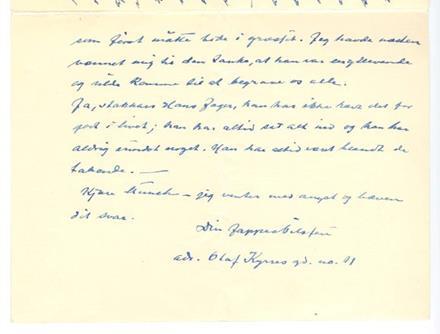 som først måtte bide i græsset. Jeg havde næsten
vænnet mig til den Tanke, at han var enestående
og vilde komme til at begrave os alle.
Ja, stakkars Hans Jæger, han har ikke havt det for
godt i livet; han har altid set alt ind og han har
aldrig ejet noget. Han har altid været blandt de
tabende. —
Kjære Munch — jeg venter med angst og bæven
dit svar.
Din Jappe Nilssen
adr. Olaf Kyrres gd. no. 11